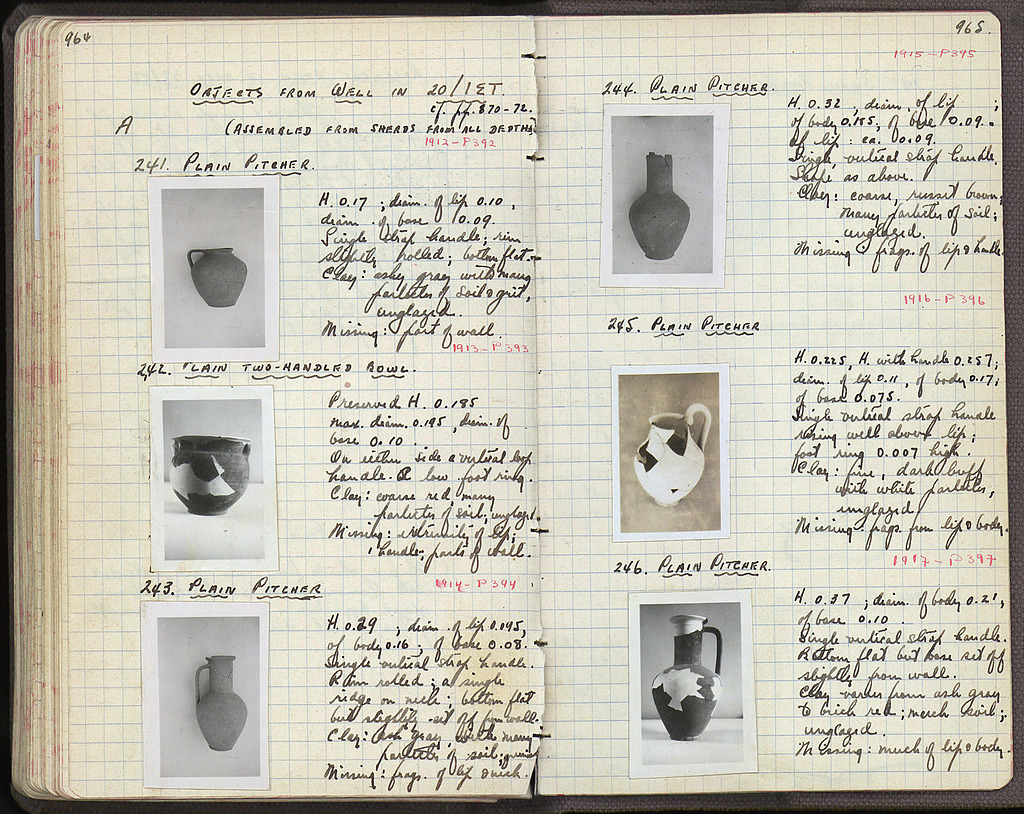 964
OBJECTS FROM WELL IN 20/1ΣΤ.
cf. pp. 870-72.
A (ASSEMBLED FROM SHERDS FROM ALL DEPTHS)
1912-P392
241. PLAIN PITCHER.
H. 0.17 ; diam. of lip 0.10,
diam. of base 0.09.
Single strap handle; rim
slightly rolled; bottom flat.
Clay: ashy gray with many
particles of soil & grit,
unglazed.
Missing: part of wall.
1913-P393
242. PLAIN TWO-HANDLED BOWL.
Preserved H. 0.185
max. diam. 0.195, diam. of
base 0.10.
On either side a vertical loop
handle. A low foot ring.
Clay: coarse red, many
particles of soil; unglazed.
Missing: extremity of lip;
1 handle; parts of wall.
243. PLAIN PITCHER
1914-P394
H. 0.29 ; diam. of lip 0.095,
of body 0.16; of base 0.08.
Single vertical strap handle.
Rim rolled; a single
ridge on neck; bottom flat
but slightly set off from wall.
Clay: Ash gray with many
particles of soil;
Missing: frags. of lip & neck.
965.
1915-P395
244. PLAIN PITCHER.
H. 0.32 ; diam. of lip ;
of body 0.185; of base 0.09.
of lip: ca. 0.09.
Single vertical strap handle.
Shape as above.
Clay: coarse, russet brown,
many particles of soil;
unglazed.
Missing: frags. of lip & handle.
1916-P396
245. PLAIN PITCHER
H. 0.225, H. with handle 0.257;
diam. of lip 0.11, of body 0.17;
of base 0.075.
Single vertical strap handle
rising well above lip;
foot ring 0.007 high.
Clay: fine, dark buff
with white particles,
unglazed.
Missing frags. from lip & body.
1917-P397
246. PLAIN PITCHER.
H. 0.37 ; diam. of body 0.21,
of base 0.10.
Single vertical strap handle.
Bottom flat but base set off
slightly from wall.
Clay varies from ash gray
to brick red; much soil;
unglazed.
Missing: much of lip & body.